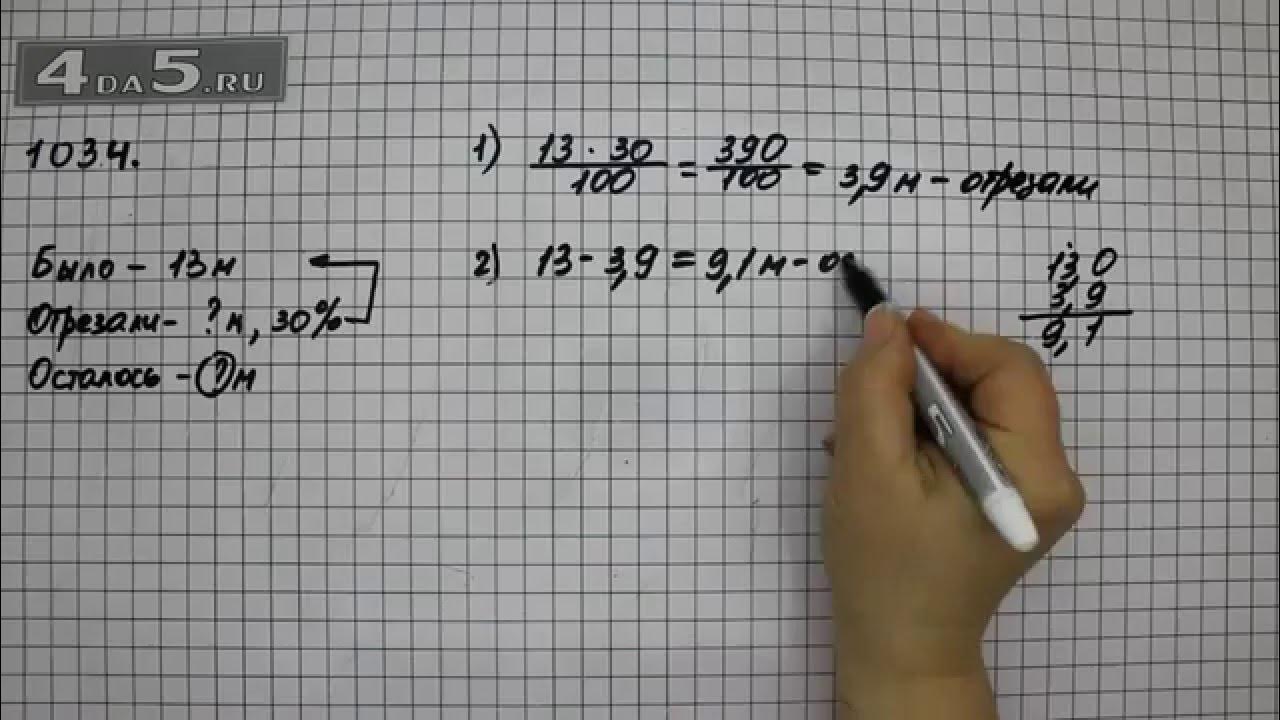 4DA5.RU
1034.
Было - 13м
Отрезали - ? м, 30%
Осталось - ? м
1) 13 · 30 / 100 = 390 / 100 = 3,9 м - отрезали
2) 13 - 3,9 = 9,1 м - ос
13 0
3,9
9,1